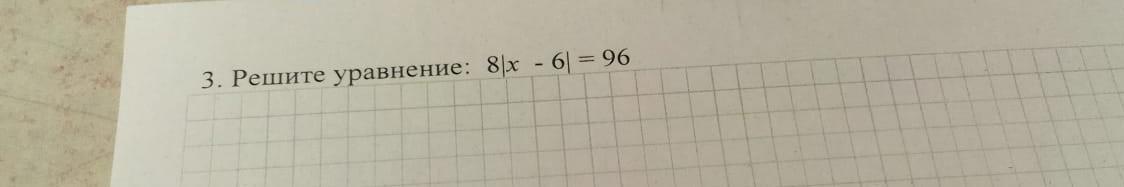 3. Решите уравнение: 8|x - 6| = 96